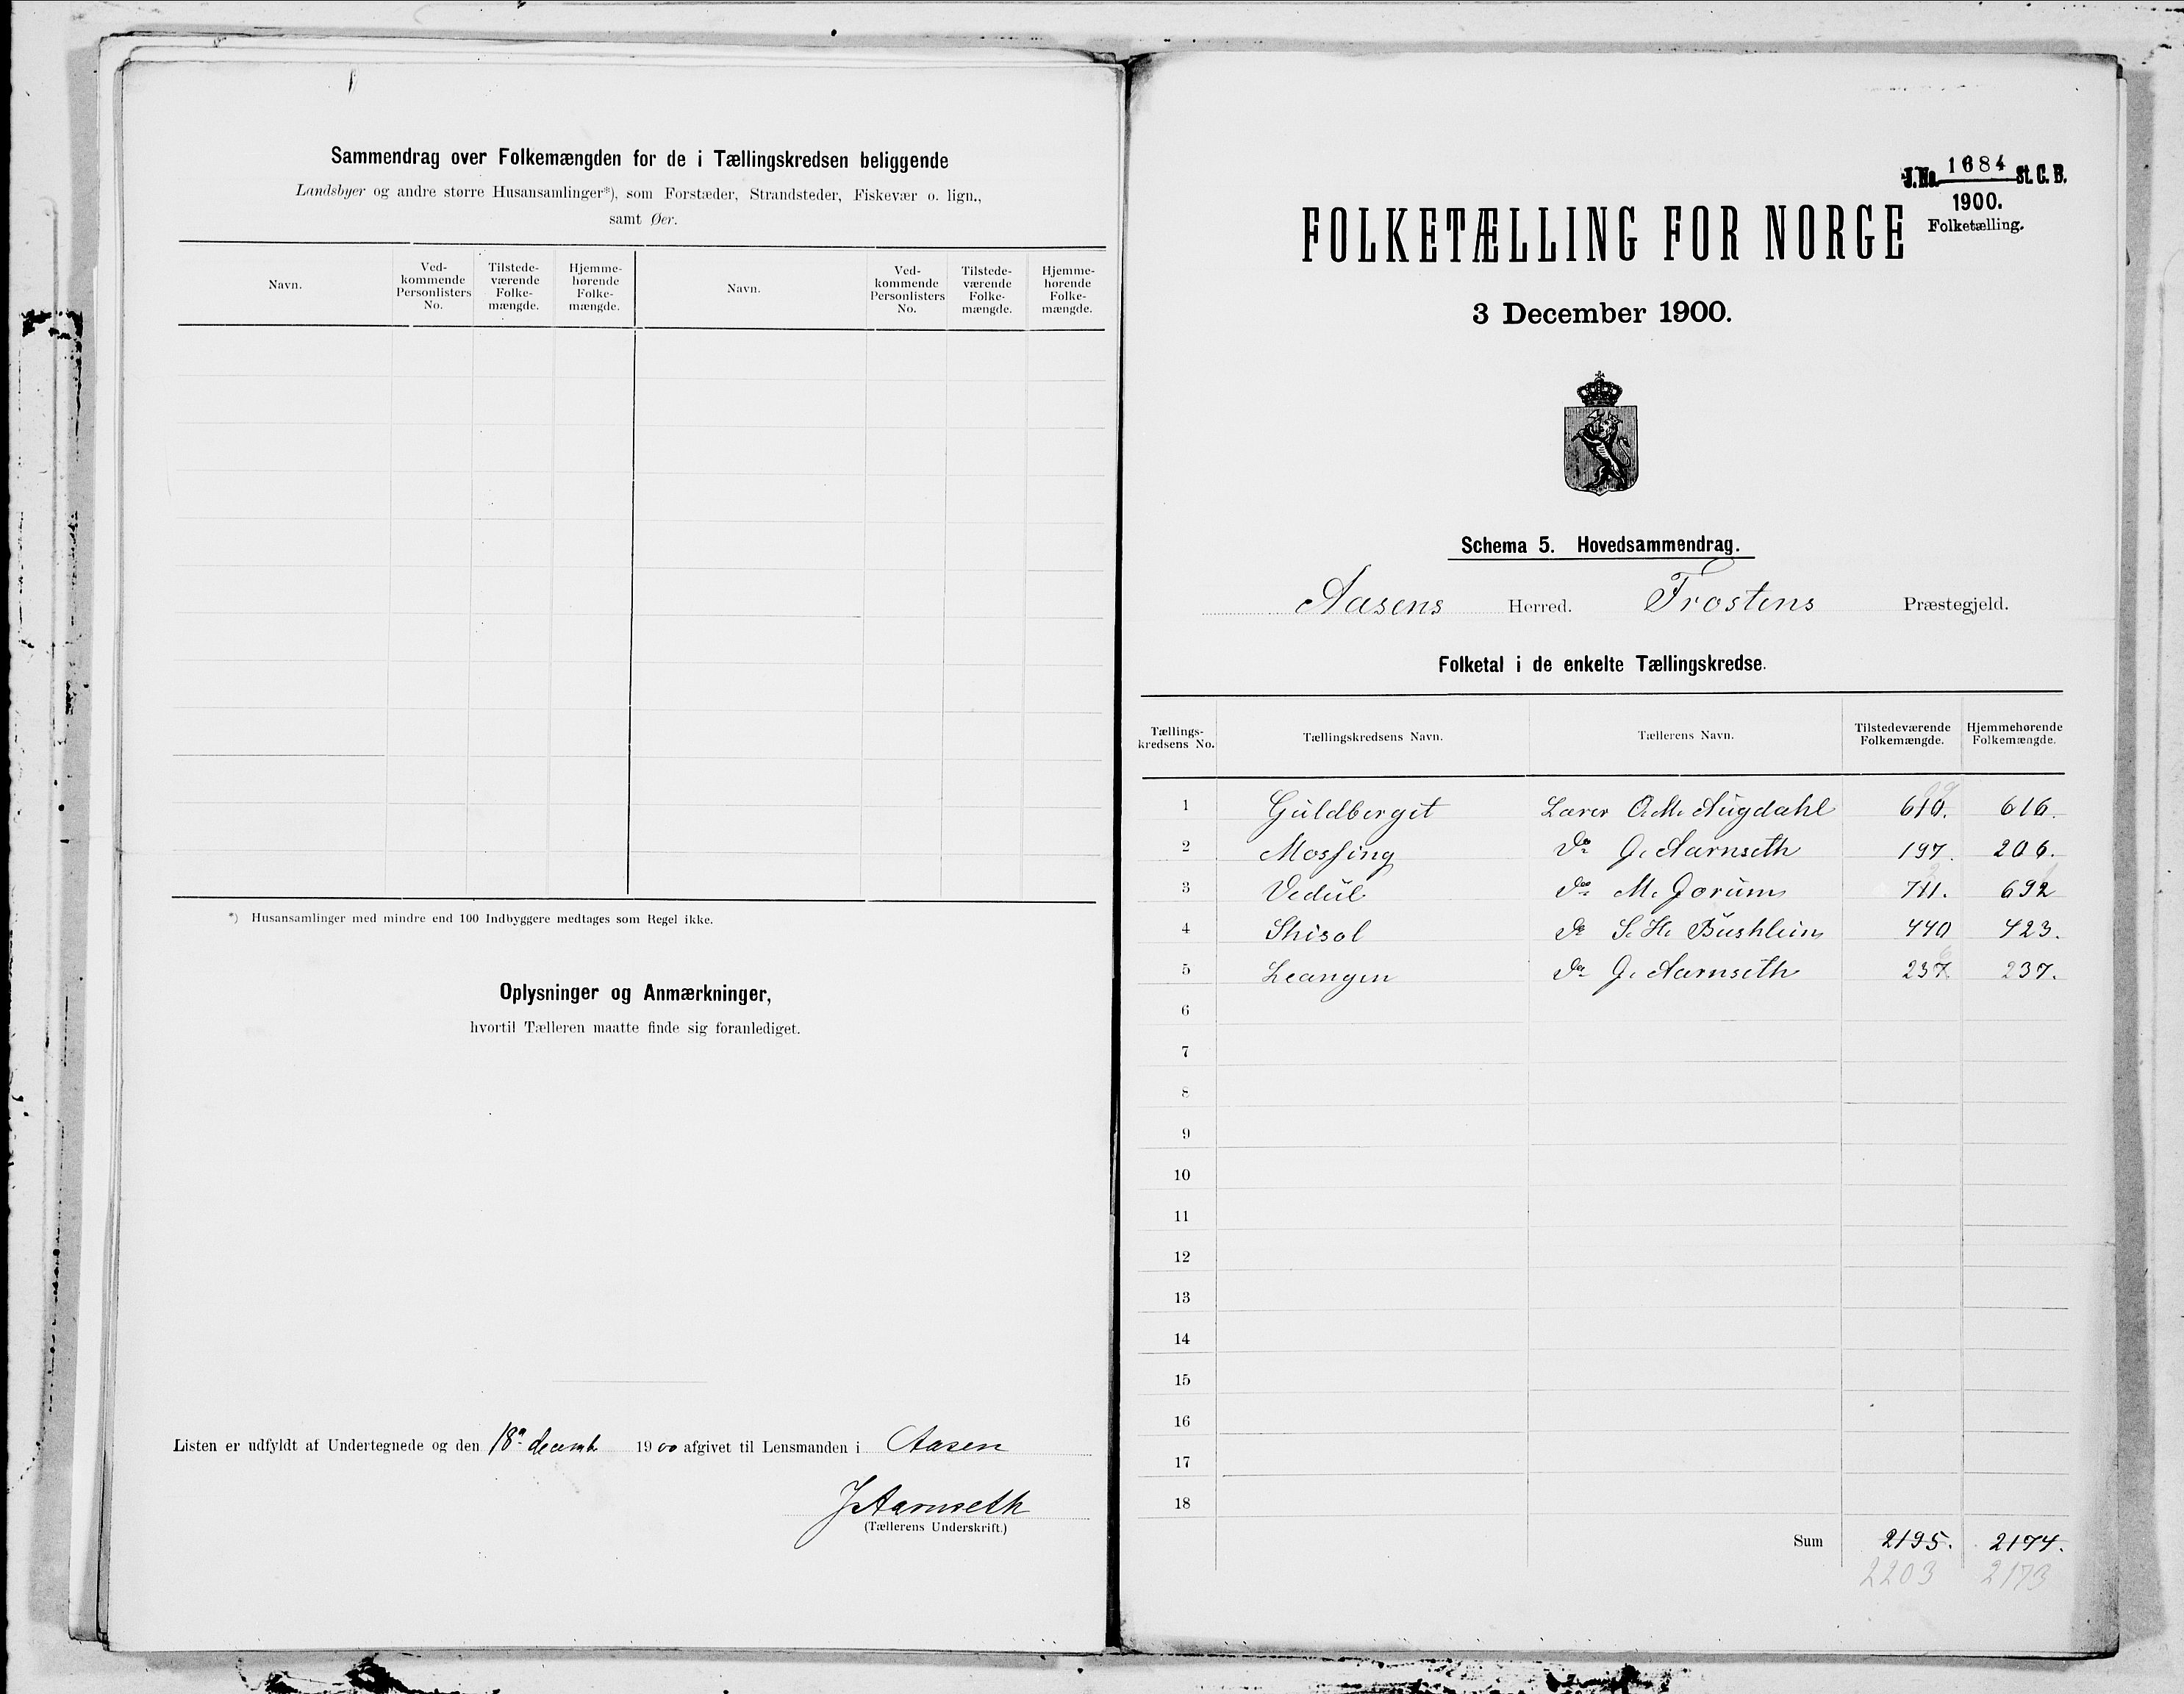 Sammendrag over Folkemængden for de i Tællingskredsen beliggende
Landsbyer og andre større Husansamlinger*), som Forstæder, Strandsteder, Fiskevær o. lign.,
samt Øer.
Navn. Ved-kommende Personlisters No. Tilstede-værende Folke-mængde. Hjemme-hørende Folke-mængde. Navn. Ved-kommende Personlisters No. Tilstede-værende Folke-mængde. Hjemme-hørende Folke-mængde.
*) Husansamlinger med mindre end 100 Indbyggere medtages som Regel ikke.
Oplysninger og Anmærkninger,
hvortil Tælleren maatte finde sig foranlediget.
Listen er udfyldt af Undertegnede og den 18n decemb 1900 afgivet til Lensmanden i Aasen
J Aarnseth
(Tællerens Underskrift.)
J.No. 1684 St. C. B.
1900.
Folketælling.
FOLKETÆLLING FOR NORGE
3 December 1900.
Schema 5. Hovedsammendrag.
Aasens Herred. Frostens Præstegjeld.
Folketal i de enkelte Tællingskredse.
Tællings-kredsens No. Tællingskredsens Navn. Tællerens Navn. Tilstedeværende Folkemængde. Hjemmehørende Folkemængde.
1 Guldberget Lærer O. M. Augdahl 610. 616.
2 Mossing Do J. Aarnseth 197. 206.
3 Vedul Do M. Jørum 711. 692
4 Skisol Do S. H. Buskhein 440 423.
5 Leangen Do J. Aarnseth 237 237.
6
7
8
9
10
11
12
13
14
15
16
17
18
Sum 2195. 2174.
2203 2173